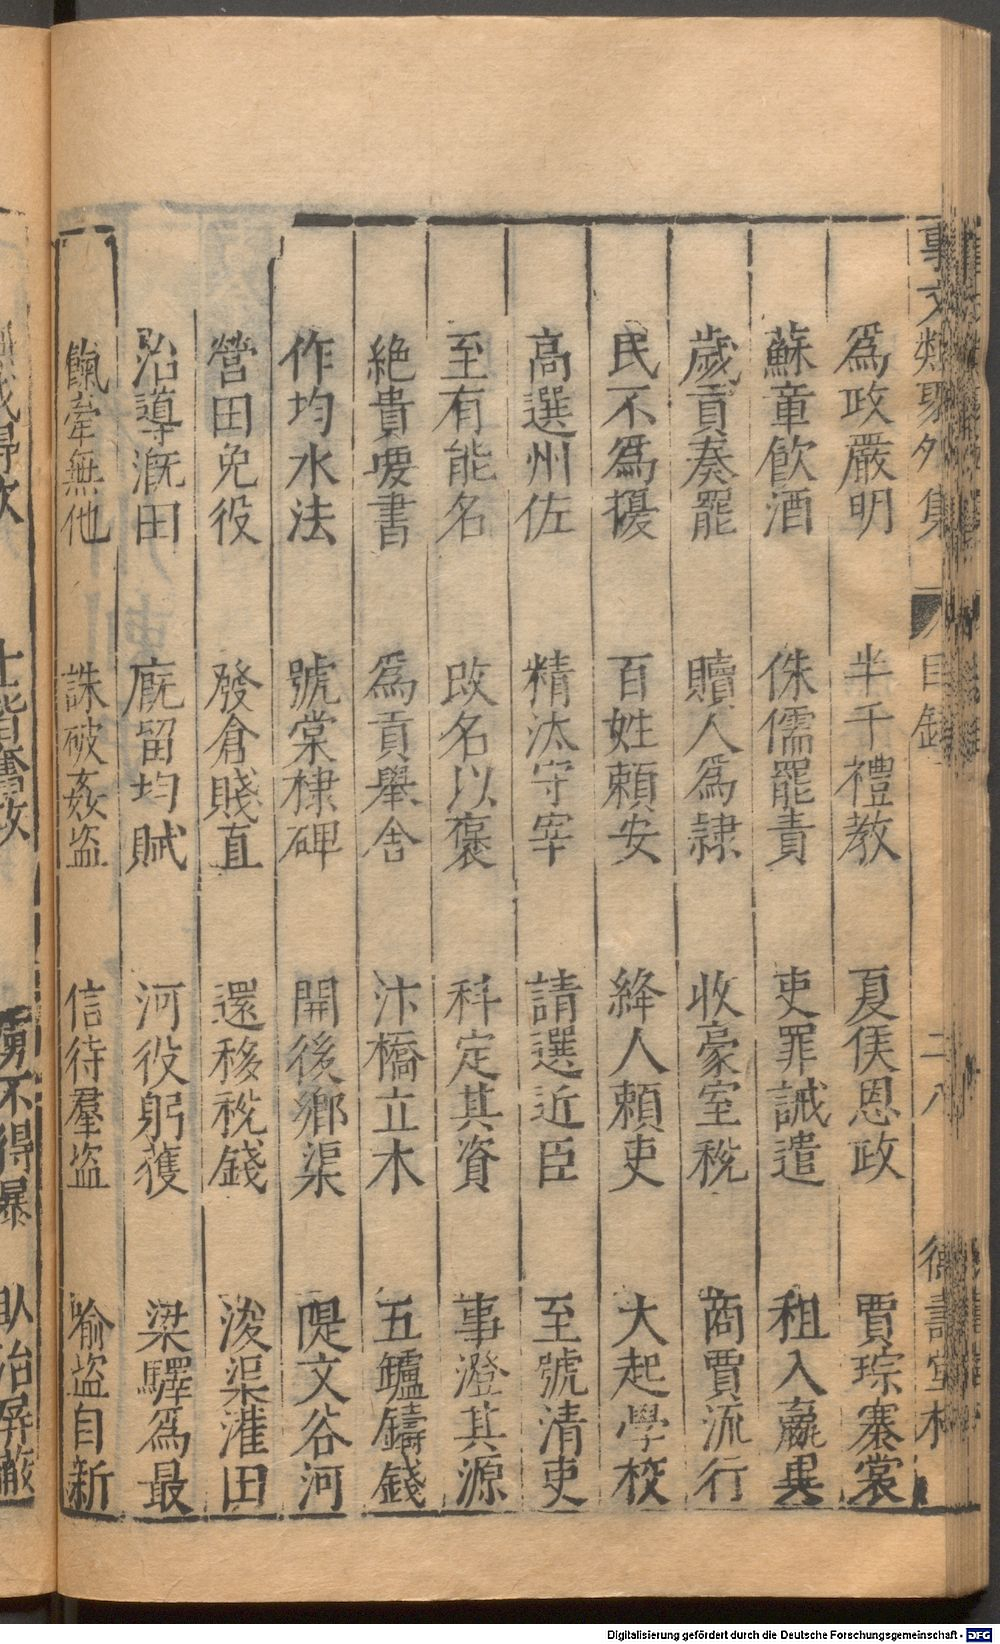 事文類聚外集 目錄 二八 德壽堂梓
爲政嚴明 半千禮教 夏侯恩政 賈琮褰裳
蘇章飲酒 侏儒罷責 吏罪誡遣 租入贏異
歲貢奏罷 贖人爲隷 收豪室稅 商賈流行
民不爲擾 百姓賴安 絳人賴吏 大起學校
高選州佐 精汰守宰 請選近臣 至號清吏
至有能名 改名以褒 科定其資 事澄其源
絕貴要書 爲貢舉舍 汴橋立木 五鑪鑄錢
作均水法 號棠棣碑 開後鄉渠 隄文谷河
營田免役 發倉賤直 還移稅錢 浚渠灌田
治導漑田 廐留均賦 河役躬護 梁驛爲最
餼牽無他 誅破姦盗 信待羣盗 喻盗自新
不得暴 卧治屏蔽
Digitalisierung gefördert durch die Deutsche Forschungsgemeinschaft - DFG